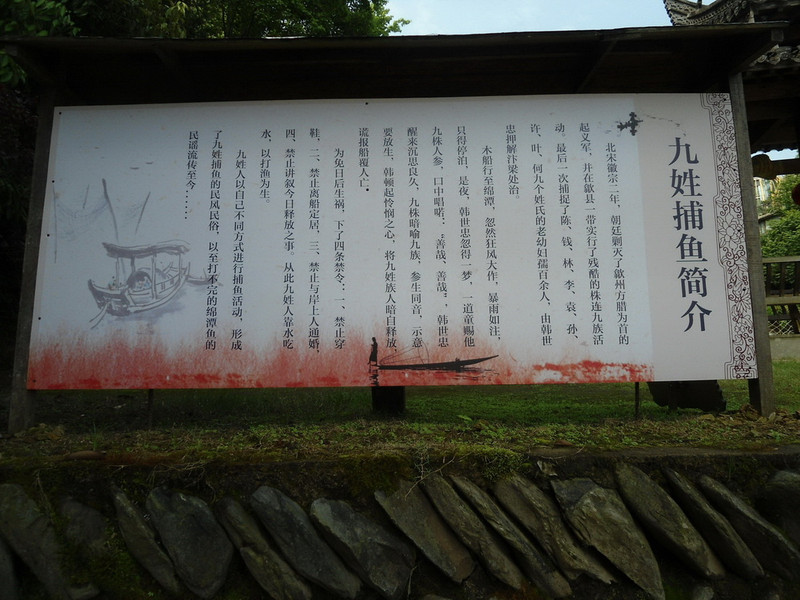 九姓捕鱼简介
北宋徽宗二年，朝廷剿灭了歙州方腊为首的
起义军，并在歙县一带实行了残酷的株连九族活
动。最后一次捕捉了陈、钱、林、李、袁、孙、
许、叶、何九个姓氏的老幼妇儒百余人，由韩世
忠押解汴梁处治。
木船行至绵潭，忽然狂风大作，暴雨如注，
只得停泊，是夜，韩世忠忽得一梦，一道童赐他
九株人参，口中唱喏：“善哉、善哉”，韩世忠
醒来沉思良久，九株暗喻九族，参生同音，示意
要放生，韩顿起怜悯之心，将九姓族人暗自释放，
谎报船覆人亡。
为免日后生祸，下了四条禁令：一、禁止穿
鞋，二、禁止离船定居，三、禁止与岸上人通婚，
四、禁止讲叙今日释放之事。从此九姓人靠水吃
水，以打渔为生。
九姓人以自己不同方式进行捕鱼活动，形成
了九姓捕鱼的民风民俗，以至打不完的绵潭鱼的
民谣流传至今……